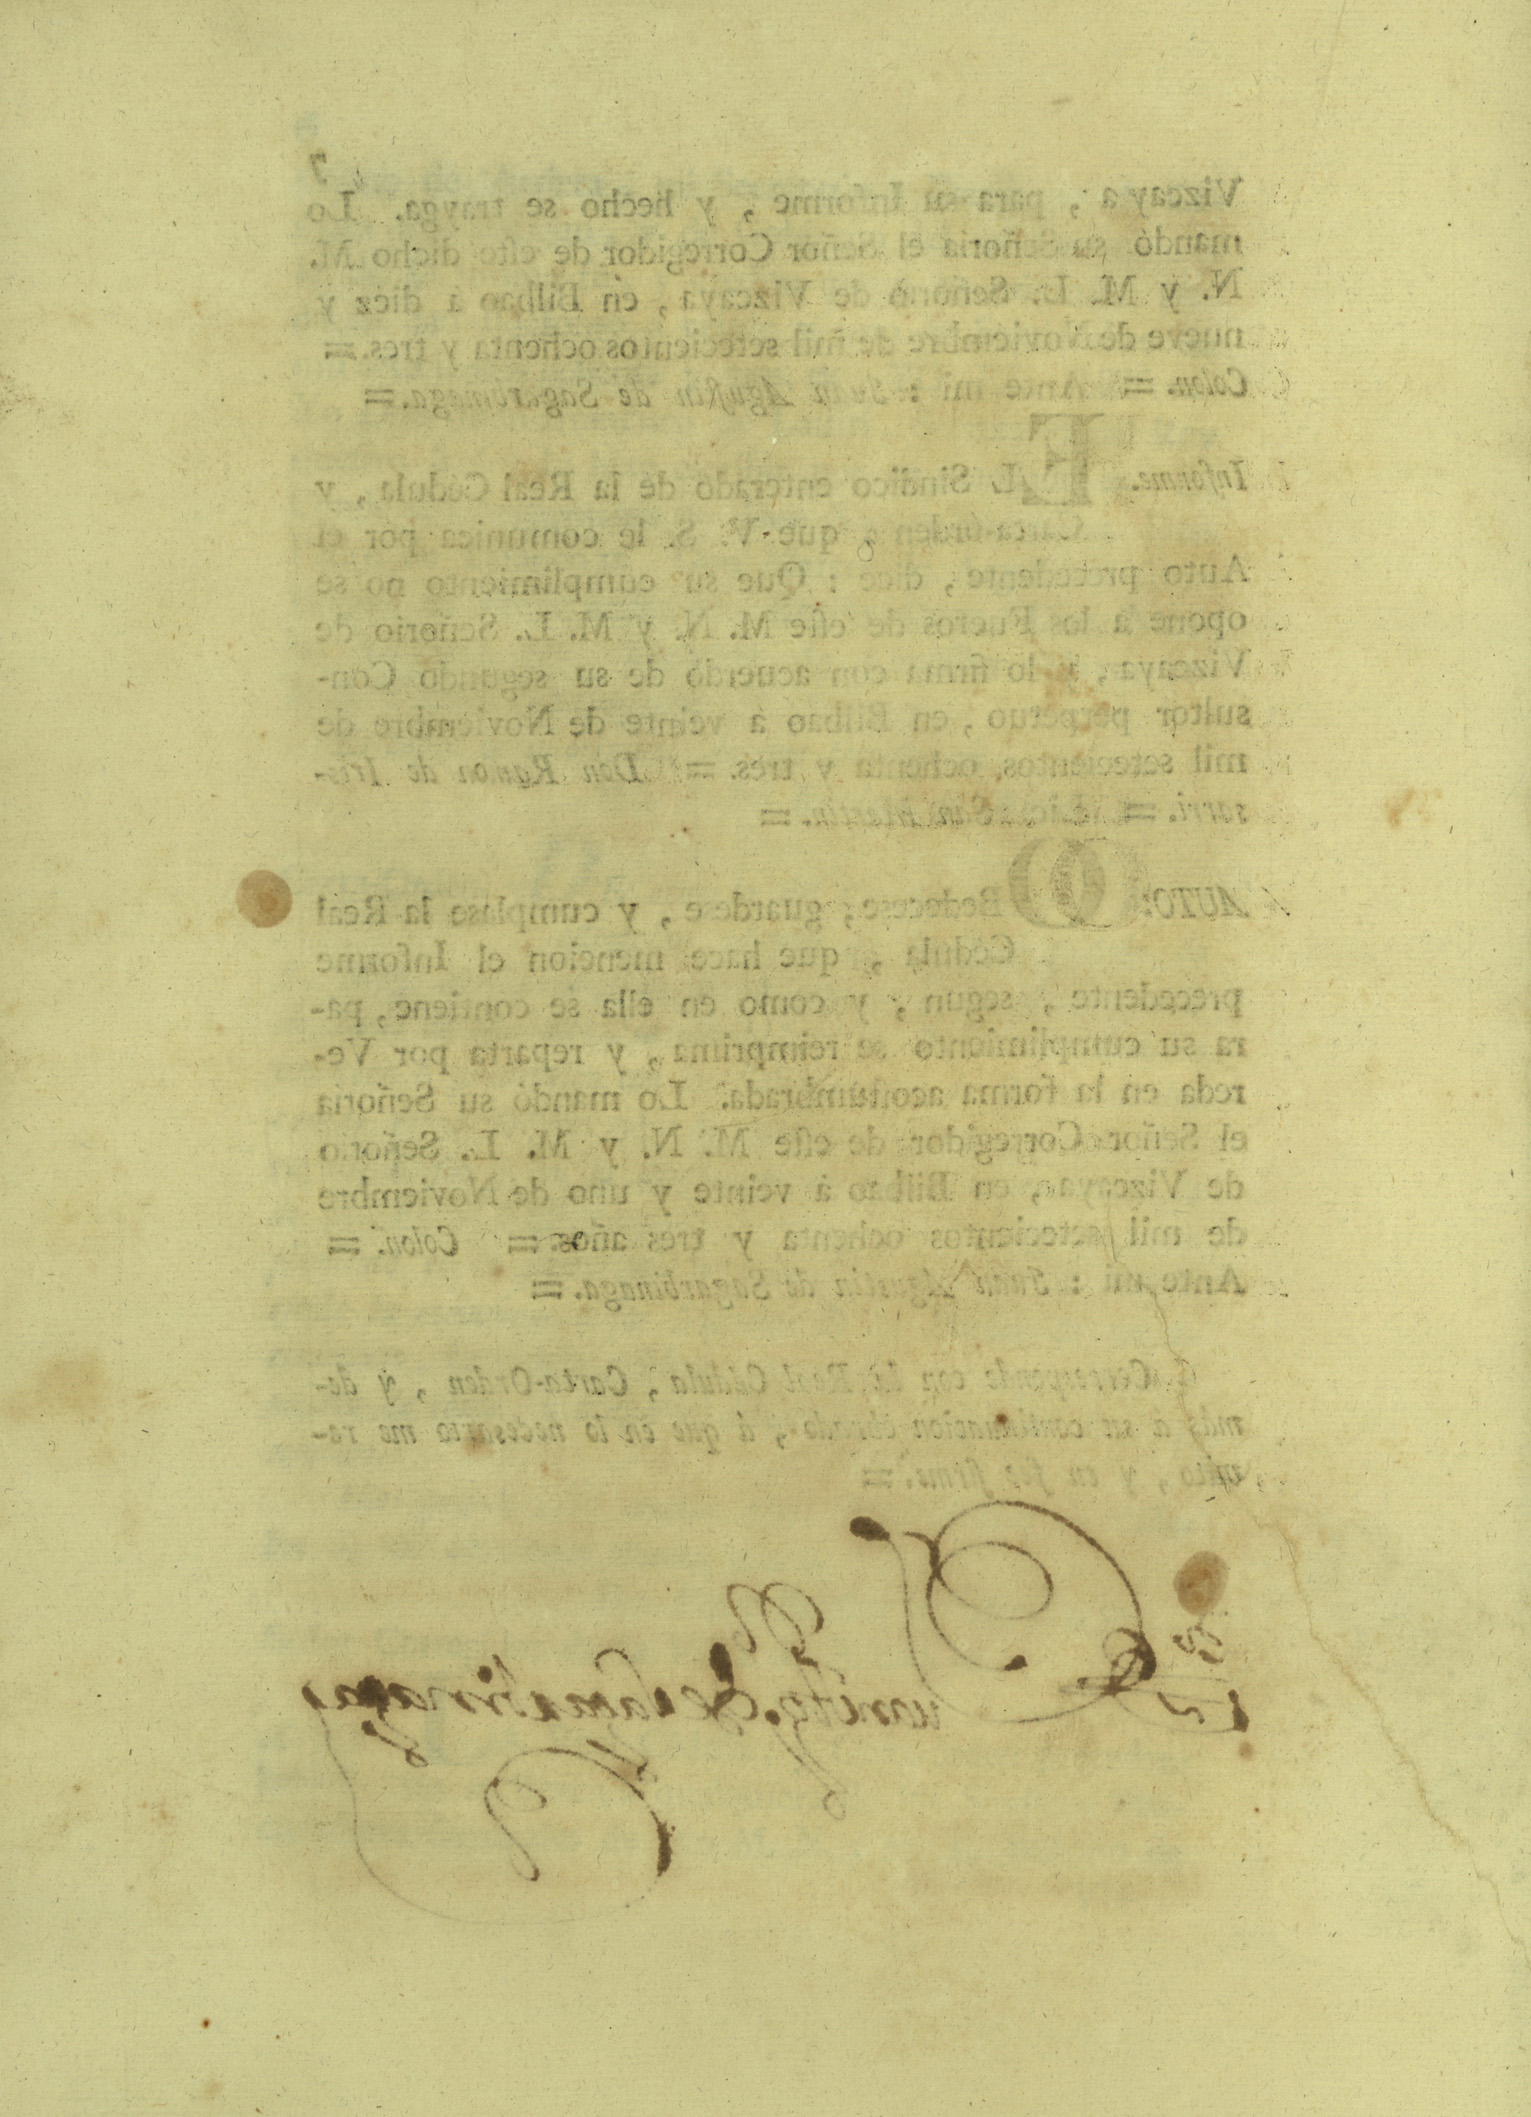 7
Vizcaya, para su Informe, y hecho se trayga. Lo
mandó su Señoria el Señor Corregidor de este dicho M.
N. y M. L. Señorio de Vizcaya, en Bilbao á diez y
nueve de Noviembre de mil setecientos ochenta y tres. =
Colon. = Ante mi : Juan Agustin de Sagarbinaga. =
Informe. EL Sindico enterado de la Real Cédula, y
Carta-orden, que V. S. le comunica por el
Auto precedente, dice : Que su cumplimiento no se
opone á los Fueros de este M. N. y M. L. Señorio de
Vizcaya, y lo firma con acuerdo de su segundo Con-
sultor perpetuo, en Bilbao á veinte de Noviembre de
mil setecientos, ochenta y tres. = Don Ramon de Iris-
sarri. = Lic. San Martin. =
AUTO: OBedecese, guardese, y cumplase la Real
Cédula, que hace mencion el Informe
precedente, segun, y como en ella se contiene, pa-
ra su cumplimiento se reimprima, y reparta por Ve-
reda en la forma acostumbrada. Lo mandó su Señoria
el Señor Corregidor de este M. N. y M. L. Señorio
de Vizcaya, en Bilbao á veinte y uno de Noviembre
de mil setecientos ochenta y tres años. = Colon. =
Ante mi : Juan Agustin de Sagarbinaga. =
Corresponde con la Real Cédula, Carta-Orden, y de-
más á su continuacion obrado, á que en lo necesario me re-
mito, y en fee firmé. =
de Sagarbinaga